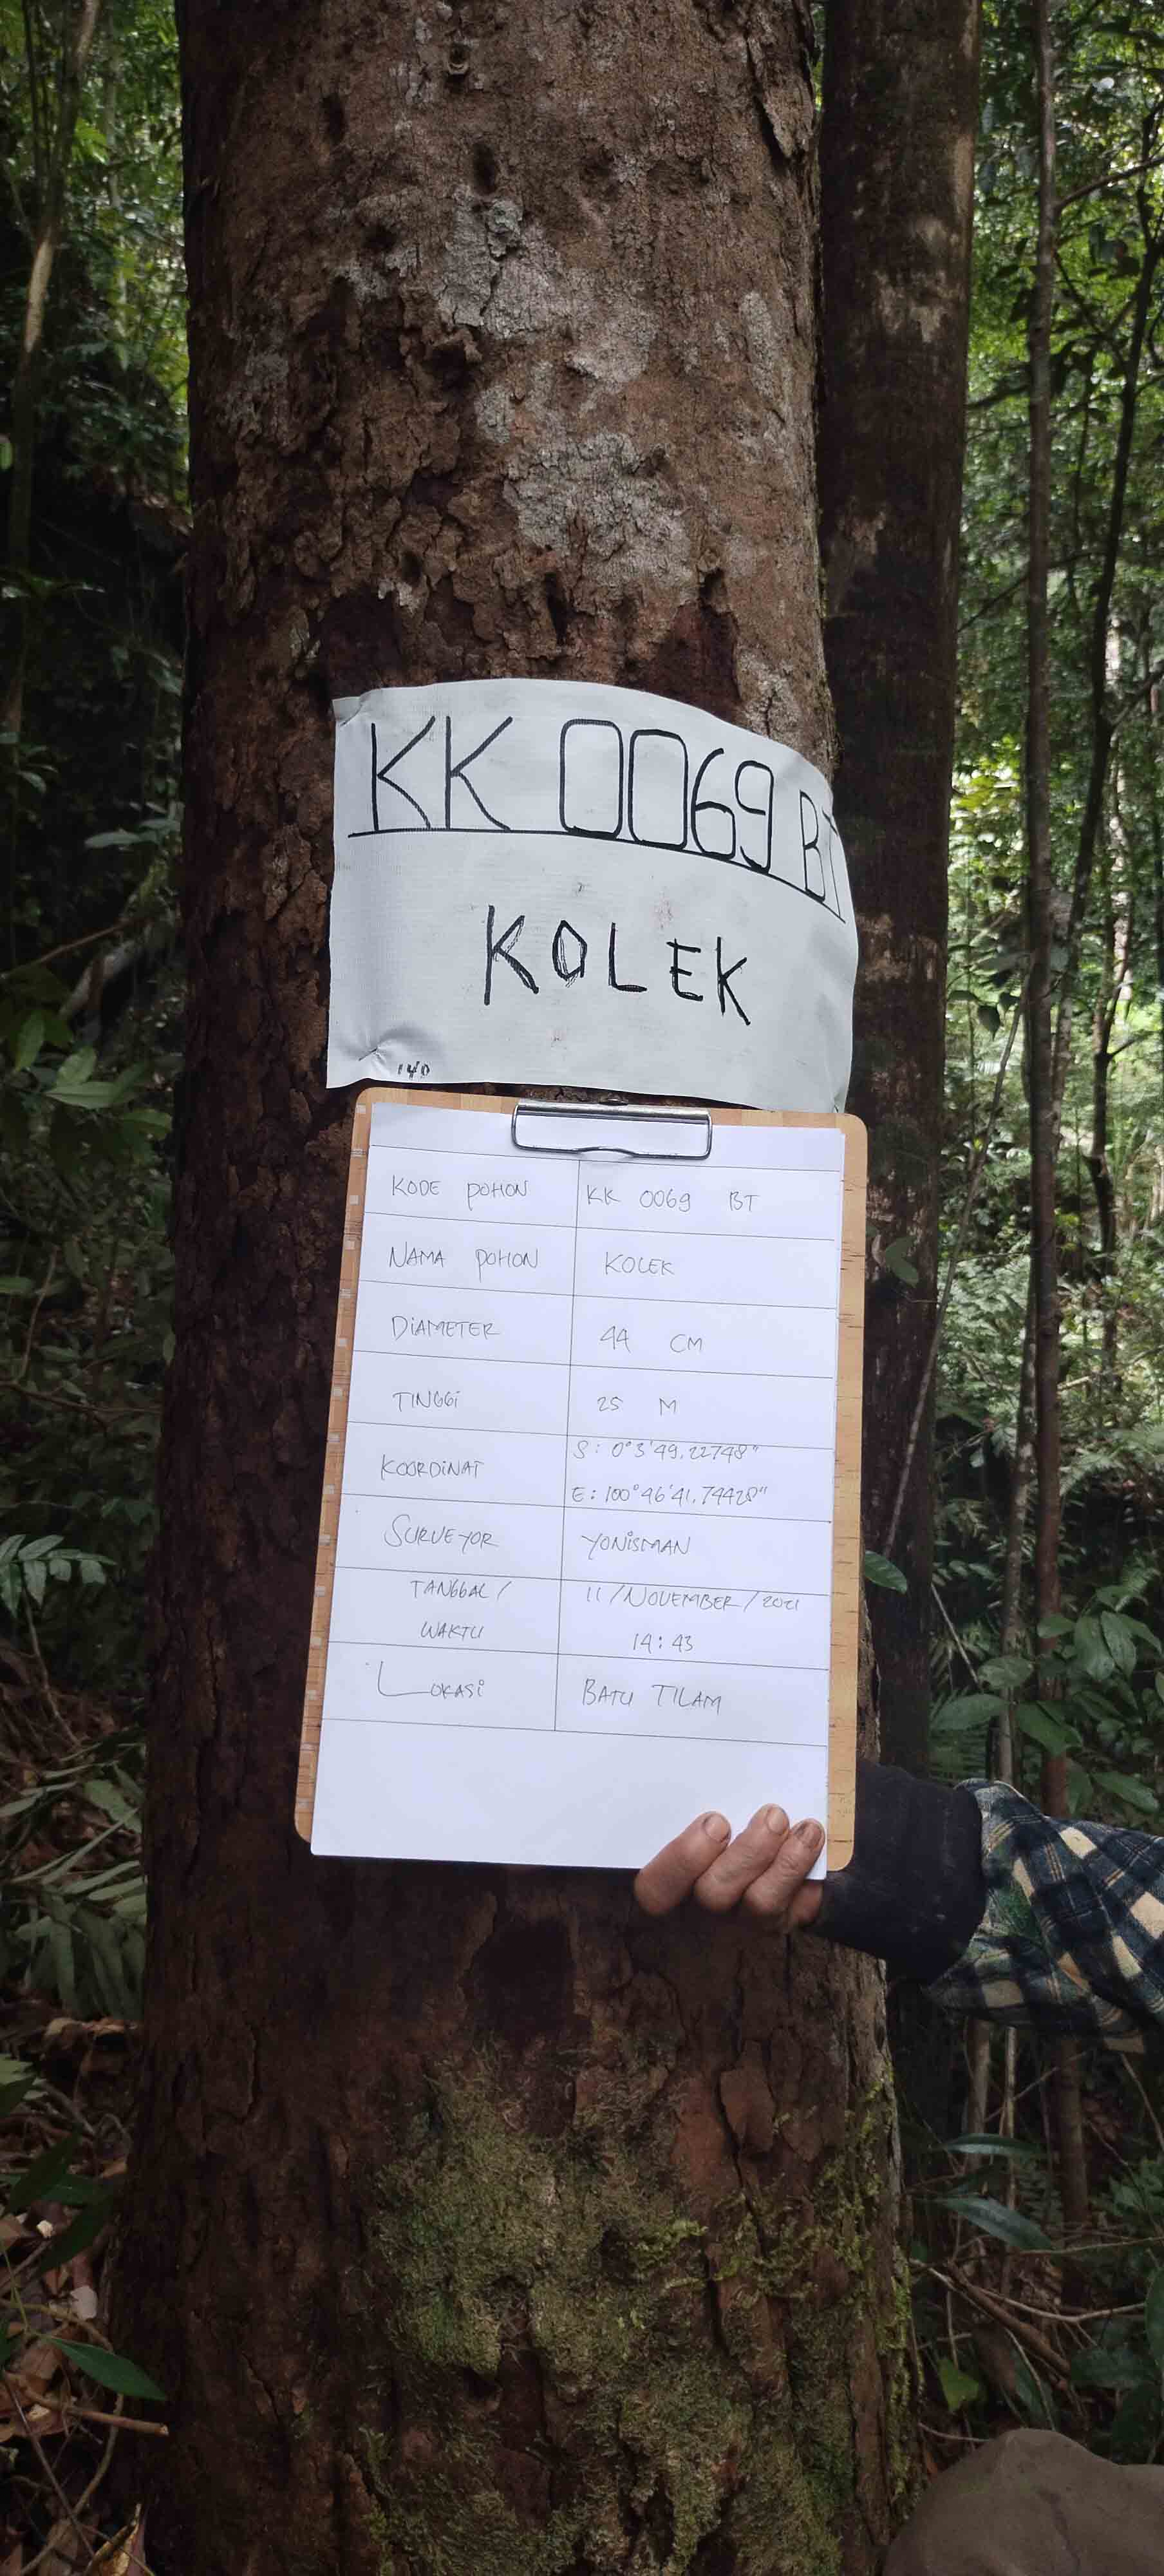 KK 0069 BT
KOLEK
140
KODE POHON KK 0069 BT
NAMA POHON KOLEK
DIAMETER 44 CM
TINGGI 25 M
KOORDINAT S: 0°3'49,22748"
E: 100°46'41,74428"
SURVEYOR YONISMAN
TANGGAL/ 11/NOVEMBER/2021
WAKTU 14:43
LOKASI BATU TILAM